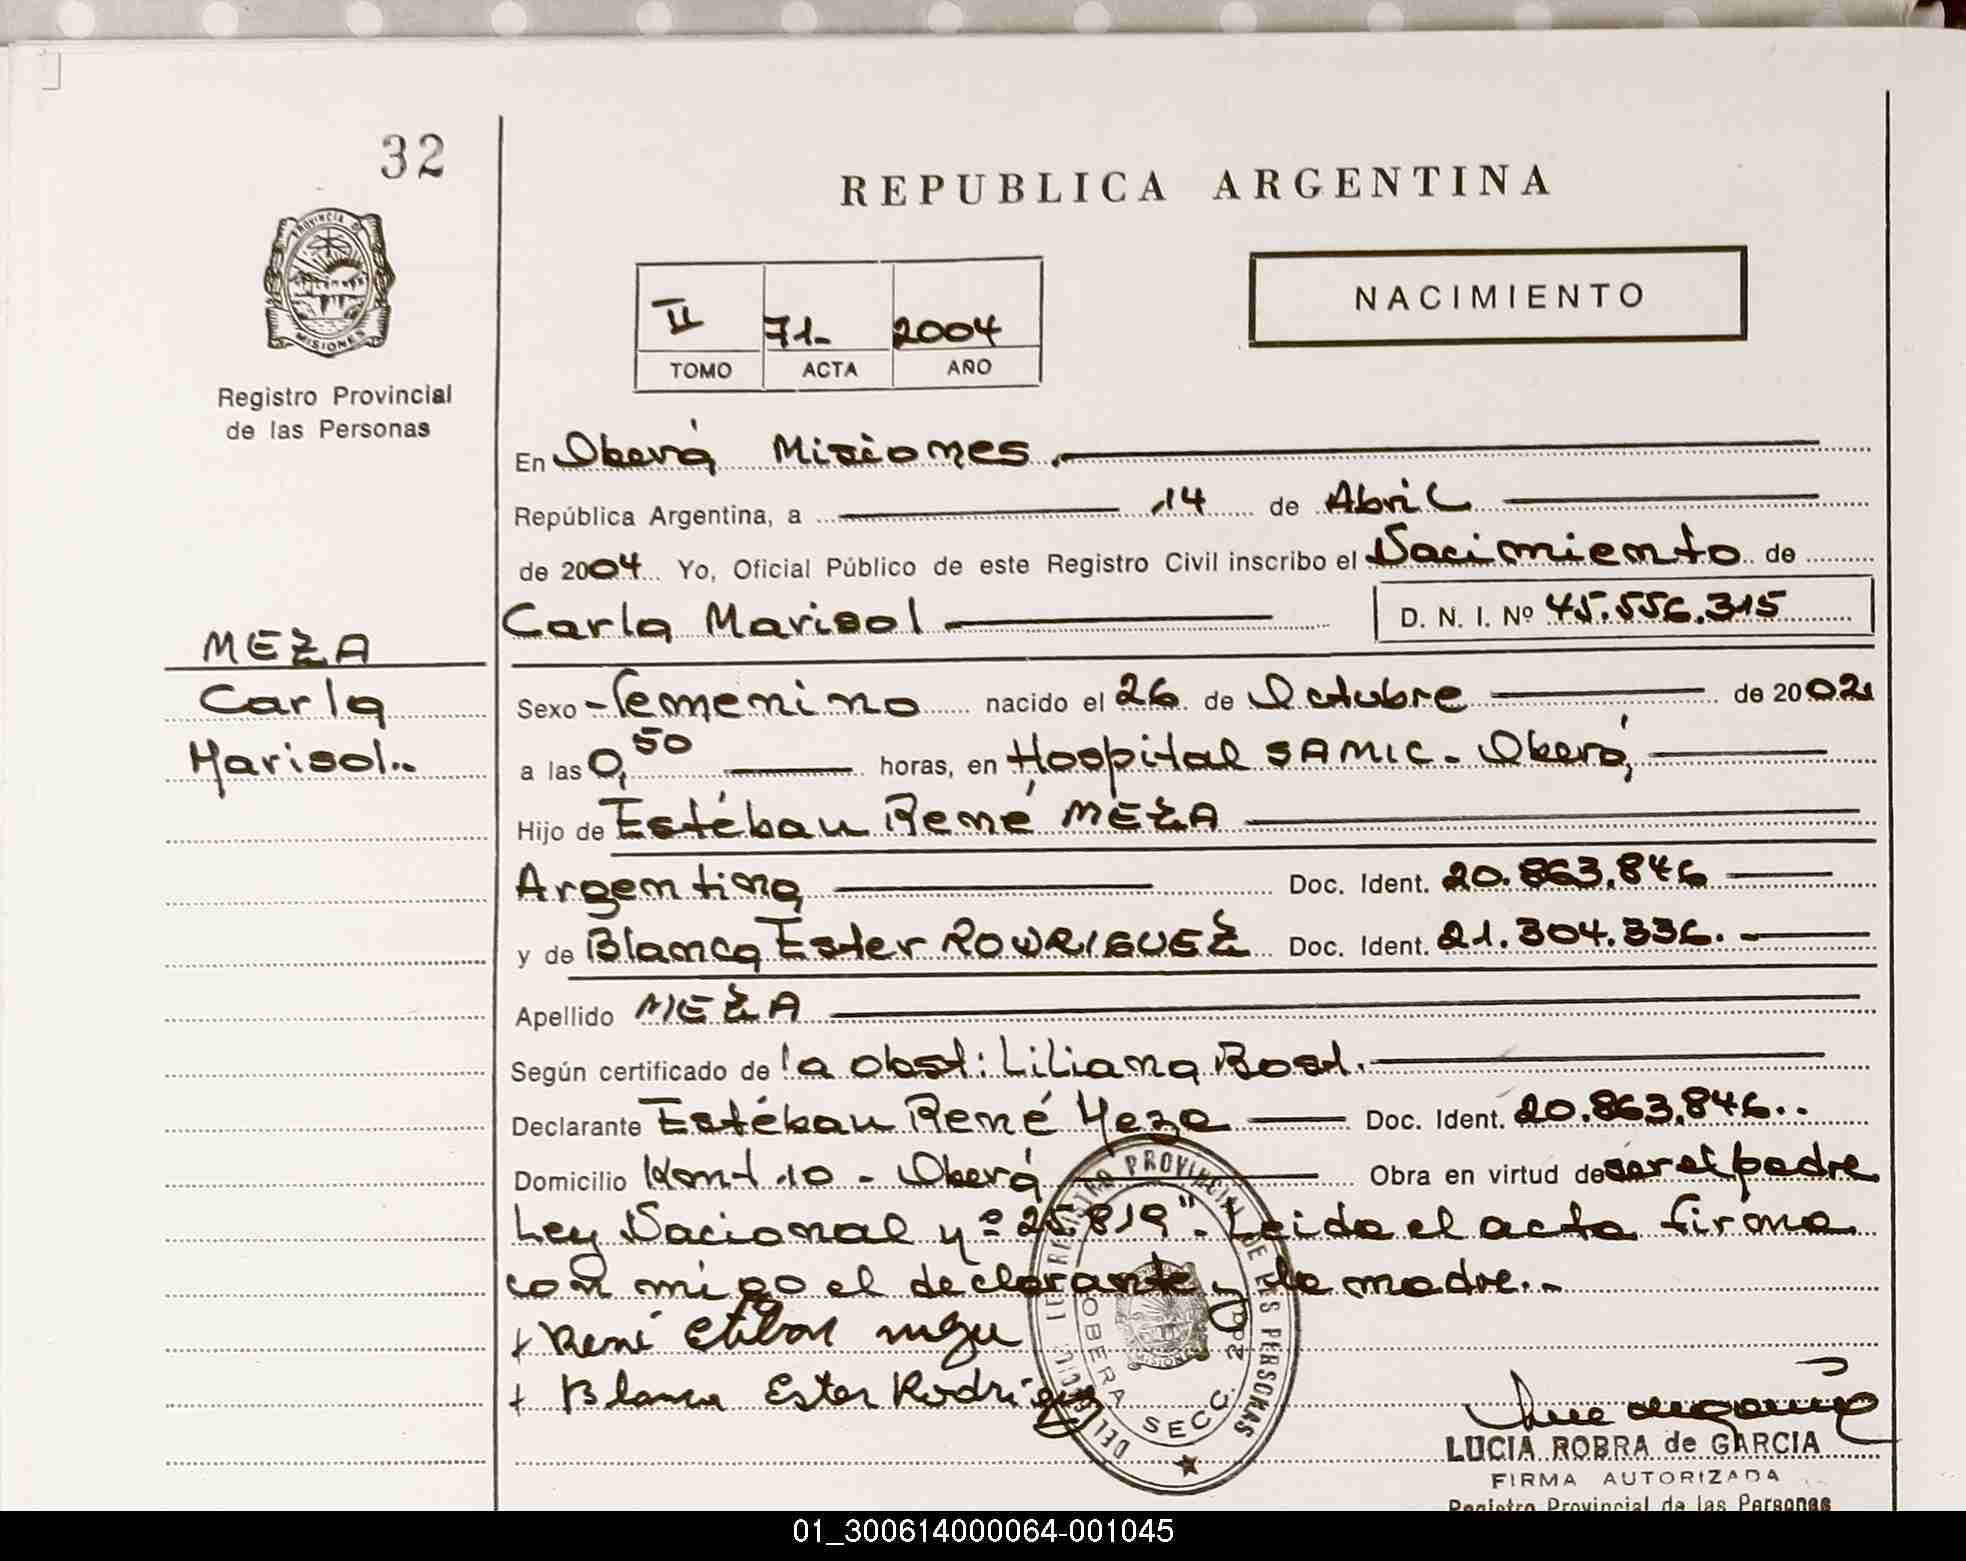 32
REPUBLICA ARGENTINA
PROVINCIA DE
MISIONES
Registro Provincial
de las Personas
NACIMIENTO
II 71- 2004
TOMO ACTA AÑO
En Oberá Misiones.
República Argentina, a 14 de Abril
de 2004 Yo, Oficial Público de este Registro Civil inscribo el Nacimiento de
Carla Marisol D. N. I. Nº 45.556.315
MEZA
Carla
Marisol..
Sexo - femenino nacido el 26 de Octubre de 2002
a las 0,50 horas, en Hospital SAMIC - Oberá,
Hijo de Estéban René MEZA
Argentina Doc. Ident. 20.863.846
y de Blanca Ester RODRIGUEZ Doc. Ident. 21.304.336.-
Apellido MEZA
Según certificado de la obst: Liliana Bost.
Declarante Estéban René Meza Doc. Ident. 20.863.846..
Domicilio Kmt 10 - Oberá Obra en virtud de ser el padre
Ley Nacional nº 25.819". Leida el acta firma
con migo el declarante y la madre.-
+ René Esteban Meza
+ Blanca Ester Rodriguez
DEL REGISTRO PROVINCIAL DE LAS PERSONAS
OBERA SECC.
LUCIA ROBRA de GARCIA
FIRMA AUTORIZADA
Registro Provincial de las Personas
01_300614000064-001045